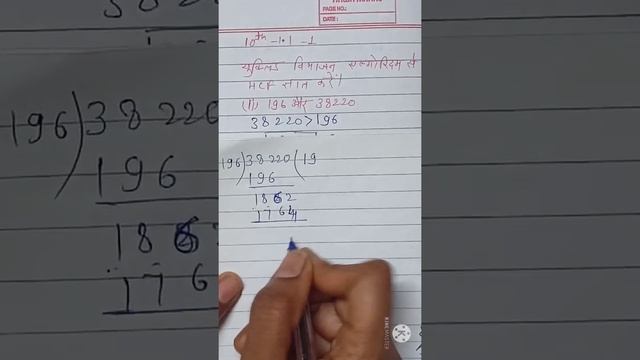 PAGE NO.:
DATE:
10th -1.1 -1
युक्लिड विभाजन एल्गोरिदम से
HCF ज्ञात करें।
(ii) 196 और 38220
38220>196
196)38220(19
196
1862
1764
196)38220
196
186
176
KINEMASTER